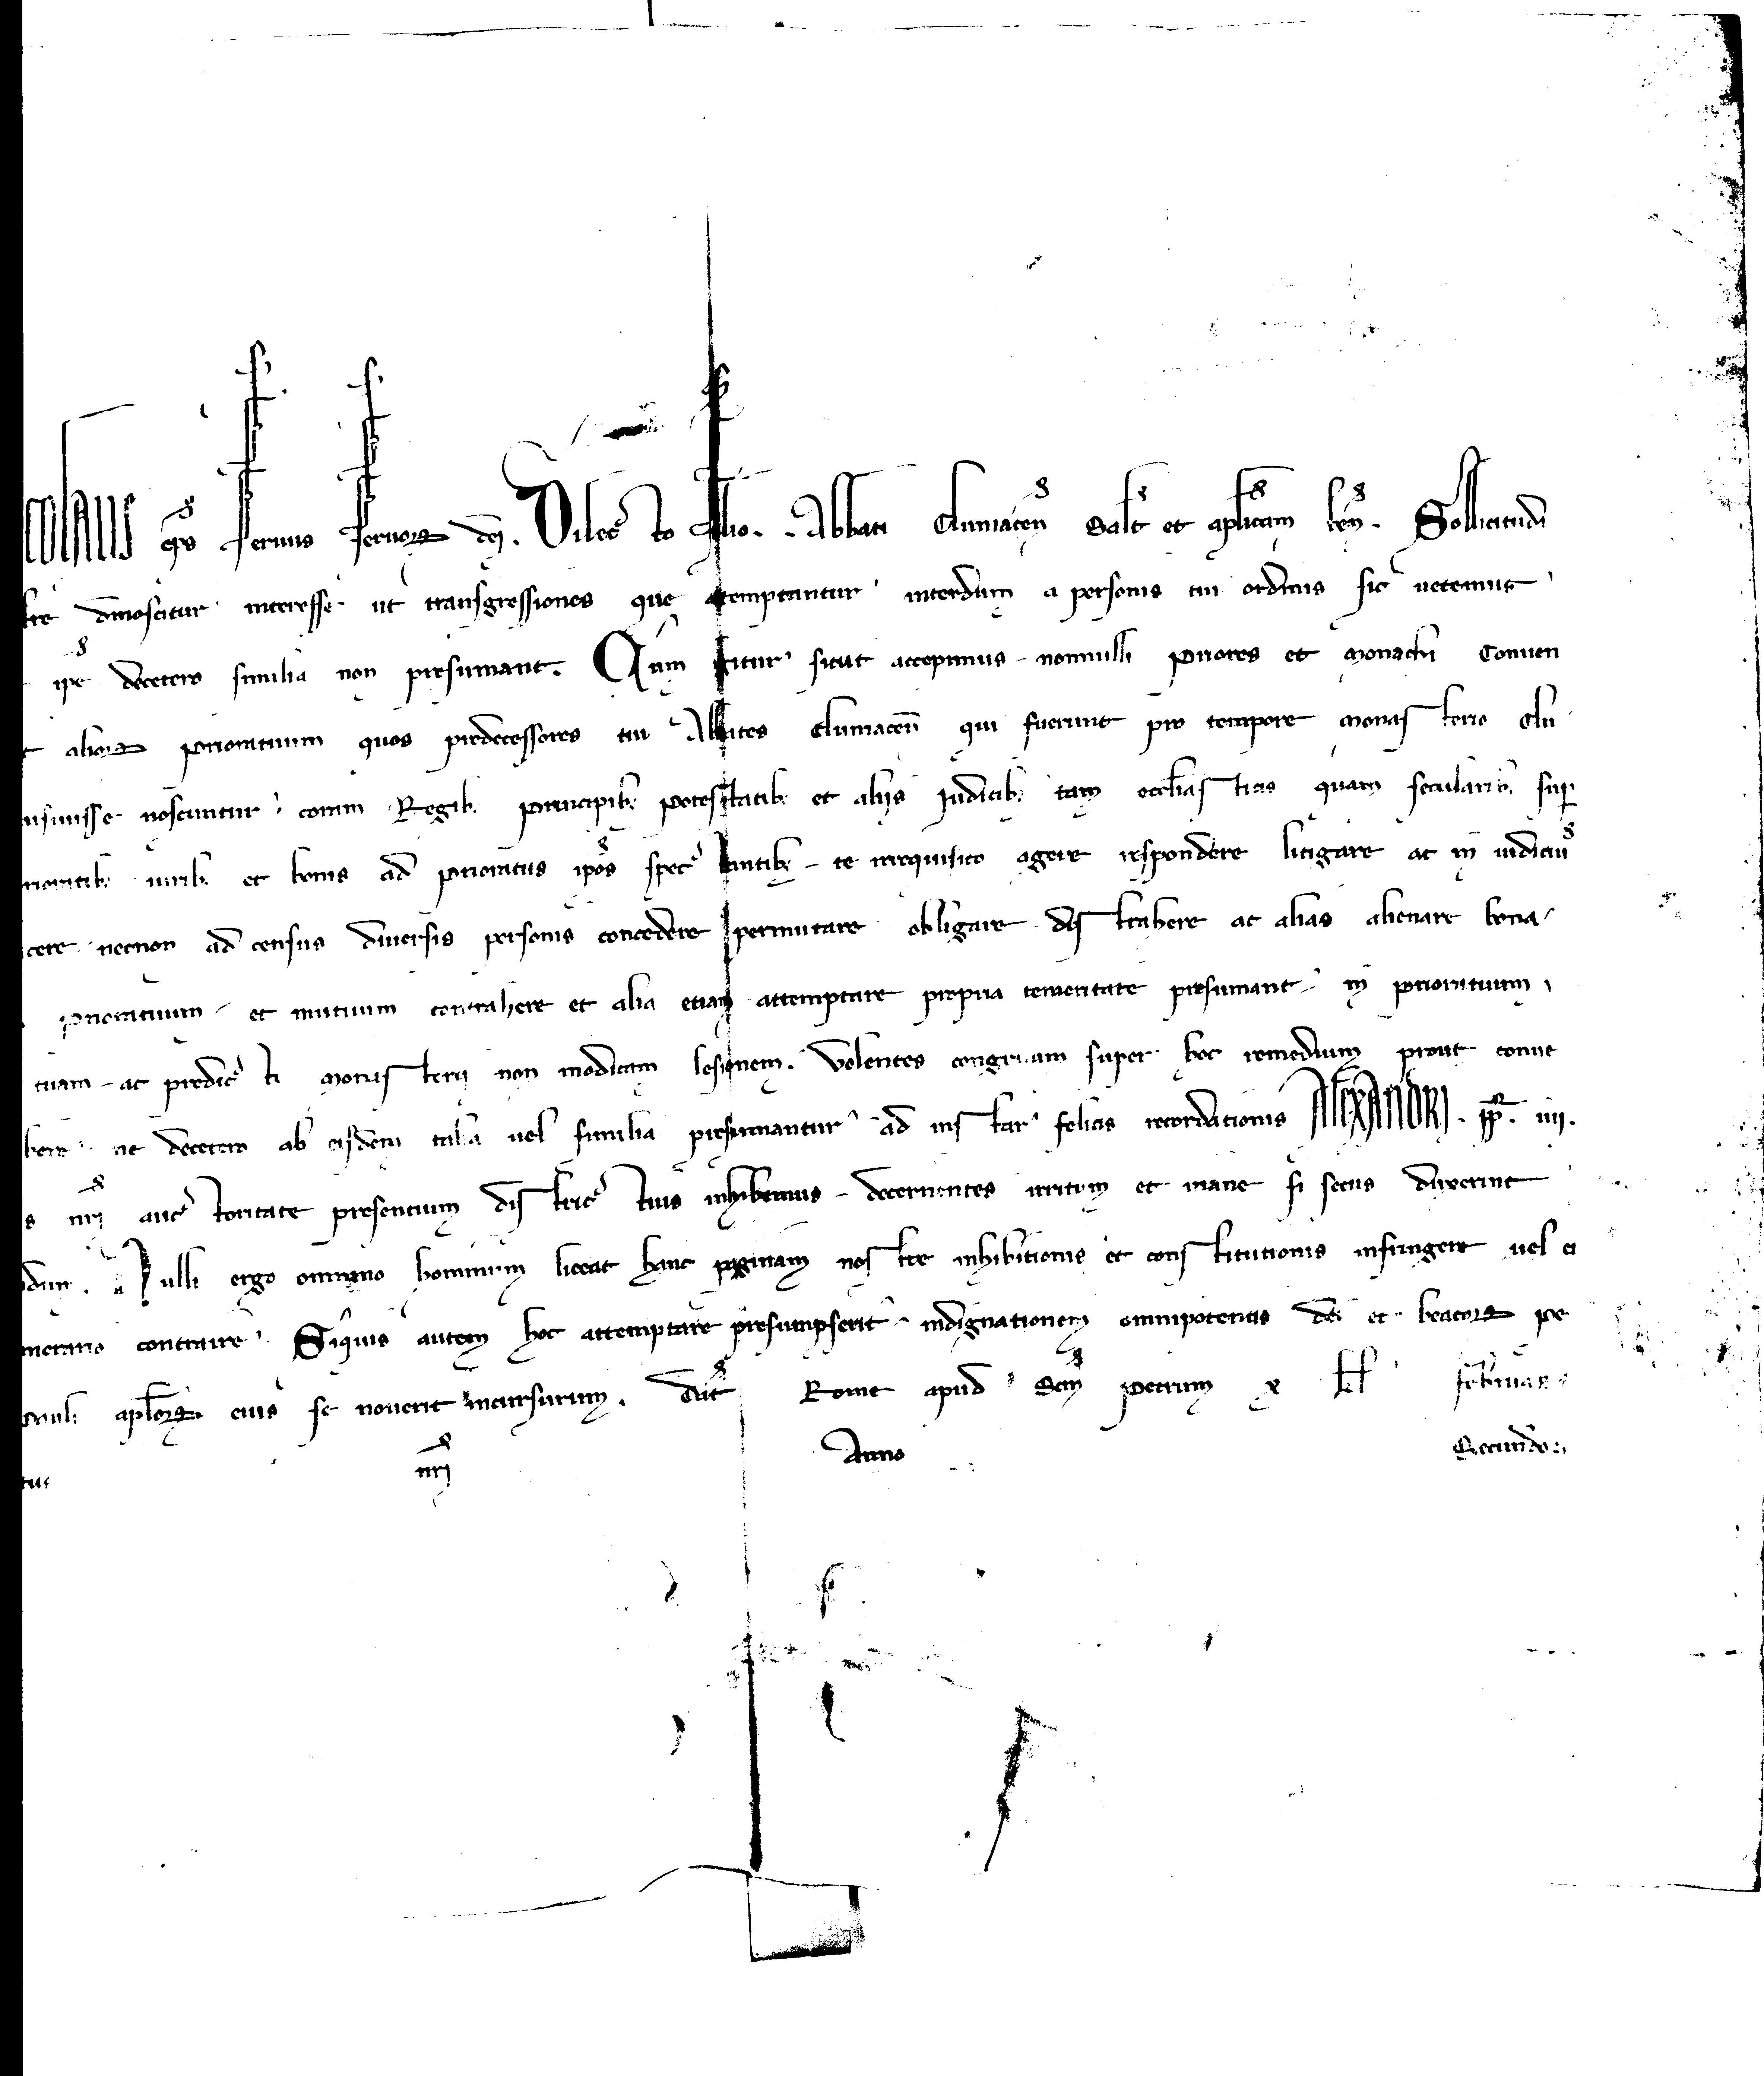 colaus ep̄s seruus seruoꝝ dei. Dilecto filio .. Abbati Cluniacen̄ Salt̄ et aplicam ben̄. Sollicitudi
tre dinoscitur interesse ut transgressiones que attemptantur interdum a persons tui ordinis sic uetemus
ipse decetero similia non presumant. Cum igitur sicut accepimus nonnulli Priores et monachi Conuen
alioꝝ prioratuum quos predecessores tui Abbates Cluniacen̄ qui fuerunt pro tempore monasterio Clu
nsuisse noscuntur coram Regib; Principib; Potestatib; et aliis Iudicib; tam ecclesiasticis quam secularib; sup
rioratib; iurib; et bonis ad prioratus ipos spectantib; te irrequisito agere respondere litigare ac in iudiciū
cere necnon ad census diuersis personis concedere permutare obligare distrahere ac alias alienare bona
prioratuum et mutuum contrahere et alia etiam attemptare propria temeritate presumant in prioratuum
tuam ac predicti monasterii non modicam lesionem. Volentes congruum super hoc remedium prout conue
bere ne decetero ab eisdem talia uel similia presumantur ad instar felicis recordationis ALEXANDRI. pp. iiij.
s nr̄i auctoritate presentium districtius inhibemus decernentes irritum et inane si secus duxerint
dum. Nulli ergo omnino hominum liceat hanc paginam nostre inhibitionis et constitutionis infringere uel ei
merario contraire. Siquis autem hoc attemptare presumpserit indignationem omnipotentis dei et beatoꝝ Pe
Pauli aploꝝ eius se nouerit incursurum. Dat̄ Rome apud Scm̄ Petrum x kl̄ februar̄
tus nr̄i Anno Secundo